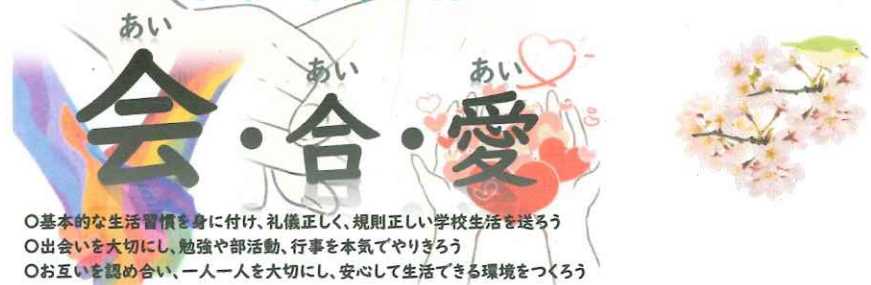 あい
あい
あい
会・合・愛
○基本的な生活習慣を身に付け、礼儀正しく、規則正しい学校生活を送ろう
○出会いを大切にし、勉強や部活動、行事を本気でやりきろう
○お互いを認め合い、一人一人を大切にし、安心して生活できる環境をつくろう